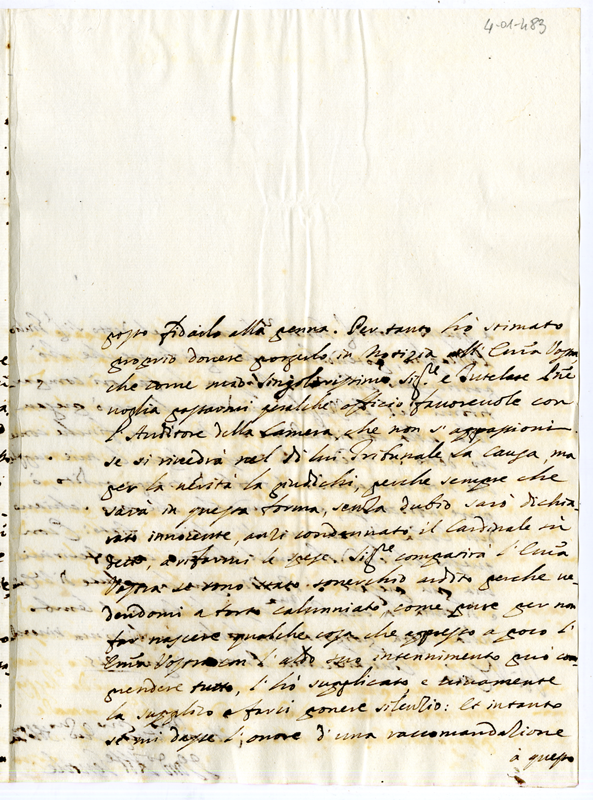 4-01-483
posso fidarlo alla penna. Per tanto hò stimato
proprio dovere porgerlo in Notizia all' Emza Vostra
che come mio Singolarissimo Sigre e Tutelare
voglia passarmi qualche officio favorevole con
l'Auditore della Camera, che non s'appassioni
se si rivedrà nel di lui Tribunale la Causa, ma
per la verità la giudichi, perche sempre che
sarà in questa forma, senza dubio sarò dichia-
rato innocente, anzi condennato il Cardinale su
detto, a rifarmi le spese. Sigre compatirà l'Emza
Vostra se sono stato soverchio ardito perche ve-
dendomi a torto calunniato, come pure per non
far nascere qualche cosa che appresso a poco l'
Emza Vostra con l'alto suo intennimento può com
prendere tutto, l'hò supplicato e vivamente
la supplico a farci ponere silenzio: Et intanto
se mi dasse l'onore d'una raccomandazione
à questo